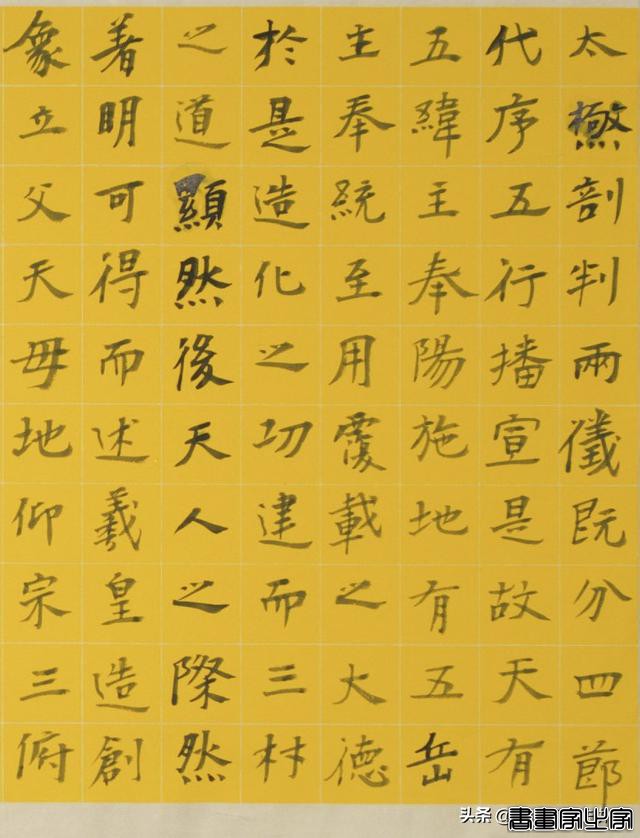 太極剖判兩儀既分四節
代序五行播宣是故天有
五緯主奉陽施地有五岳
主奉統至用覆載之大德
於是造化之功建而三材
之道顯然後天人之際然
著明可得而述羲皇造創
象立父天母地仰宗三俯
头条 @書畫